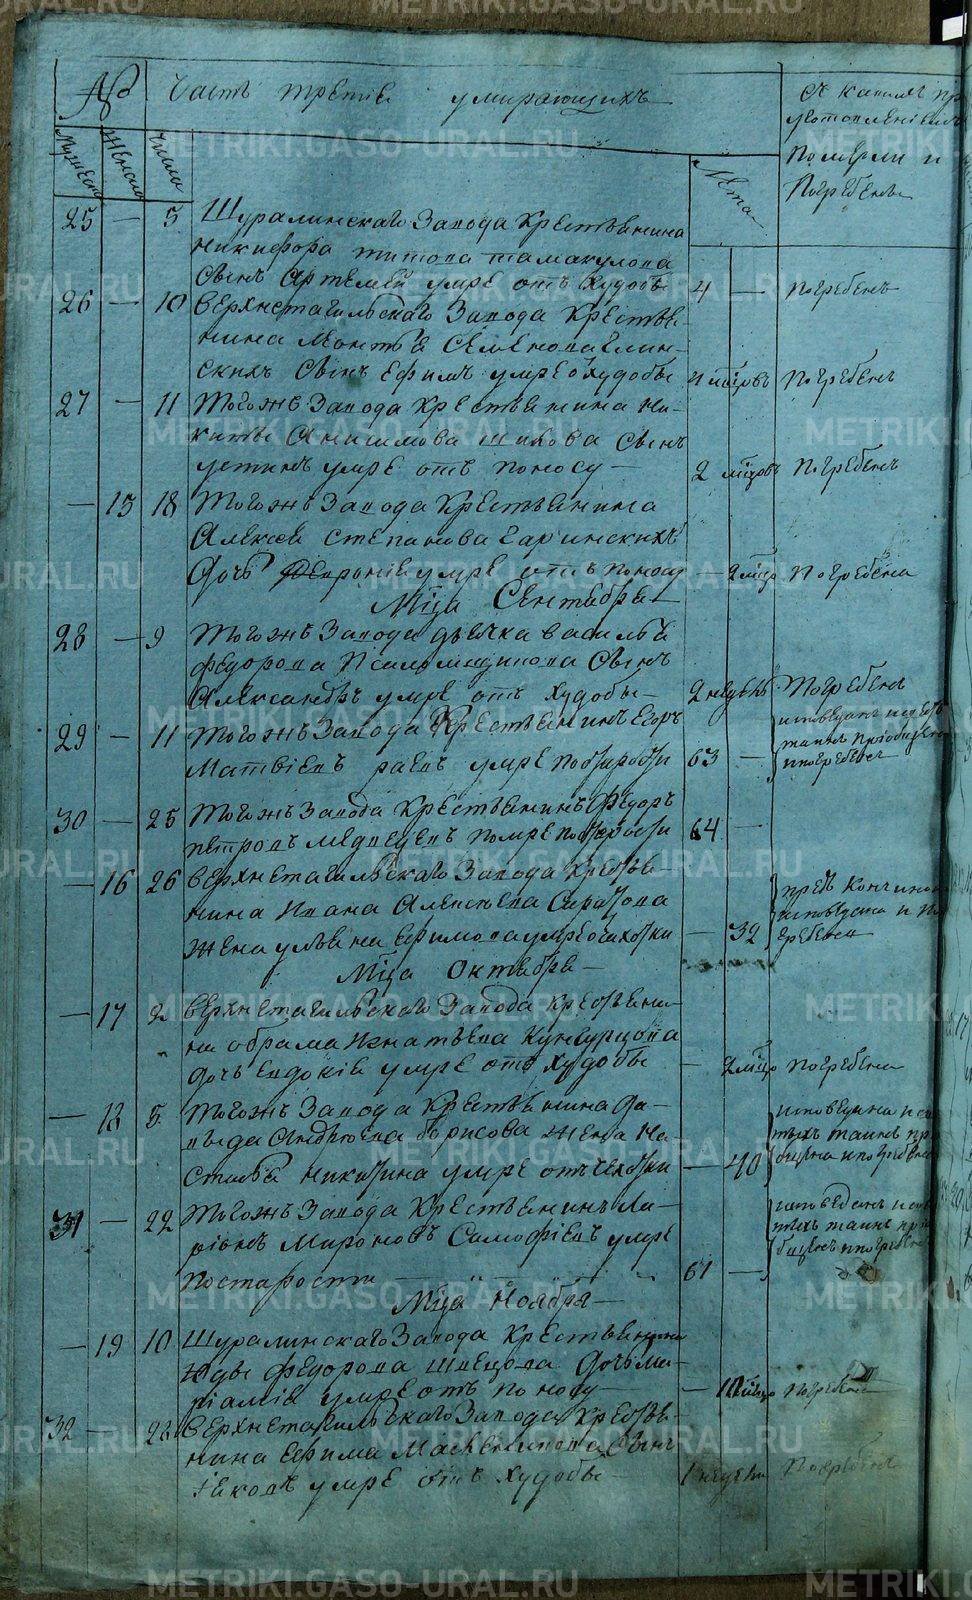 № Часть третïя умирающихъ
Съ какимъ при
уготовленïемъ
Померли и
Погребены
Мужеска Женска Числа
Лета
25 — 5 Шуралинскаго Завода Крестьянина
Никифора титова тамакулова
Сынъ Артемей умре отъ Худобы 4 — погребенъ
26 — 10 верхнетагильскаго Завода Крестья-
нина
Сынъ Ефимъ умре Худобы 4 мцовъ погребенъ
27 — 11 тогожъ Завода Крестьянина Ни-
киты Анисимова Шихова Сынъ
устинъ умре отъ поносу — 2 мцовъ погребенъ
— 15 18 тогожъ Завода Крестьянина
Алексея Степанова Гаринскихъ
Дочь Феврония умре отъ поносу — 2 мцо погребена
Мца Сентября —
28 — 9 тогожъ Завода дьячка василья
Федорова Сынъ
Александръ умре отъ Худобы — 2 недель погребенъ
29 — 11 тогожъ Завода Крестьянинъ Егоръ
Матвïевъ раевъ умре постарости 63 —
исповеданъ и святъ
таинъ прïобщенъ
и погребенъ
30 — 25 тогожъ Завода Крестьянинъ Федоръ
петровъ медведевъ помре постарости 64 —
— 16 26 верхнетагильскаго Завода крестья-
нина Ивана Алексеева
жена ульяна Ефимова умре отчахотки — 32
предъ Кончиною
исповедана и по
гребена
Мца Октября —
— 17 2 верхнетагильскаго Завода крестьяни-
на обрама Игнатьева Кунгурцова
Дочь Евдокïя умре отъ худобы — 2 мцо погребена
— 18 5 тогожъ Завода Крестьянина Да-
выда Андреева борисова жена На-
стасья никитина умре отъ чахотки — 40
исповедана и свя
тыхъ таинъ прï
общена и погребена
31 — 22 тогожъ Завода Крестьянинъ Ла-
рïонъ Мироновъ умре
постарости — 61 —
исповеданъ и свя
тыхъ таинъ прï
общенъ и погребенъ
Мца Ноября —
— 19 10 Шуралинскаго Завода Крестьянина
Федорова Швецова Дочь Ма-
рïамïя умре отъ поносу — — 10 мцо погребена
32 — 22 верхнетагильскаго Завода Крестья-
нина Ефима Сынъ
ïяковъ умре отъ Худобы — 1 недели погребенъ
METRIKI.GASO-URAL.RU